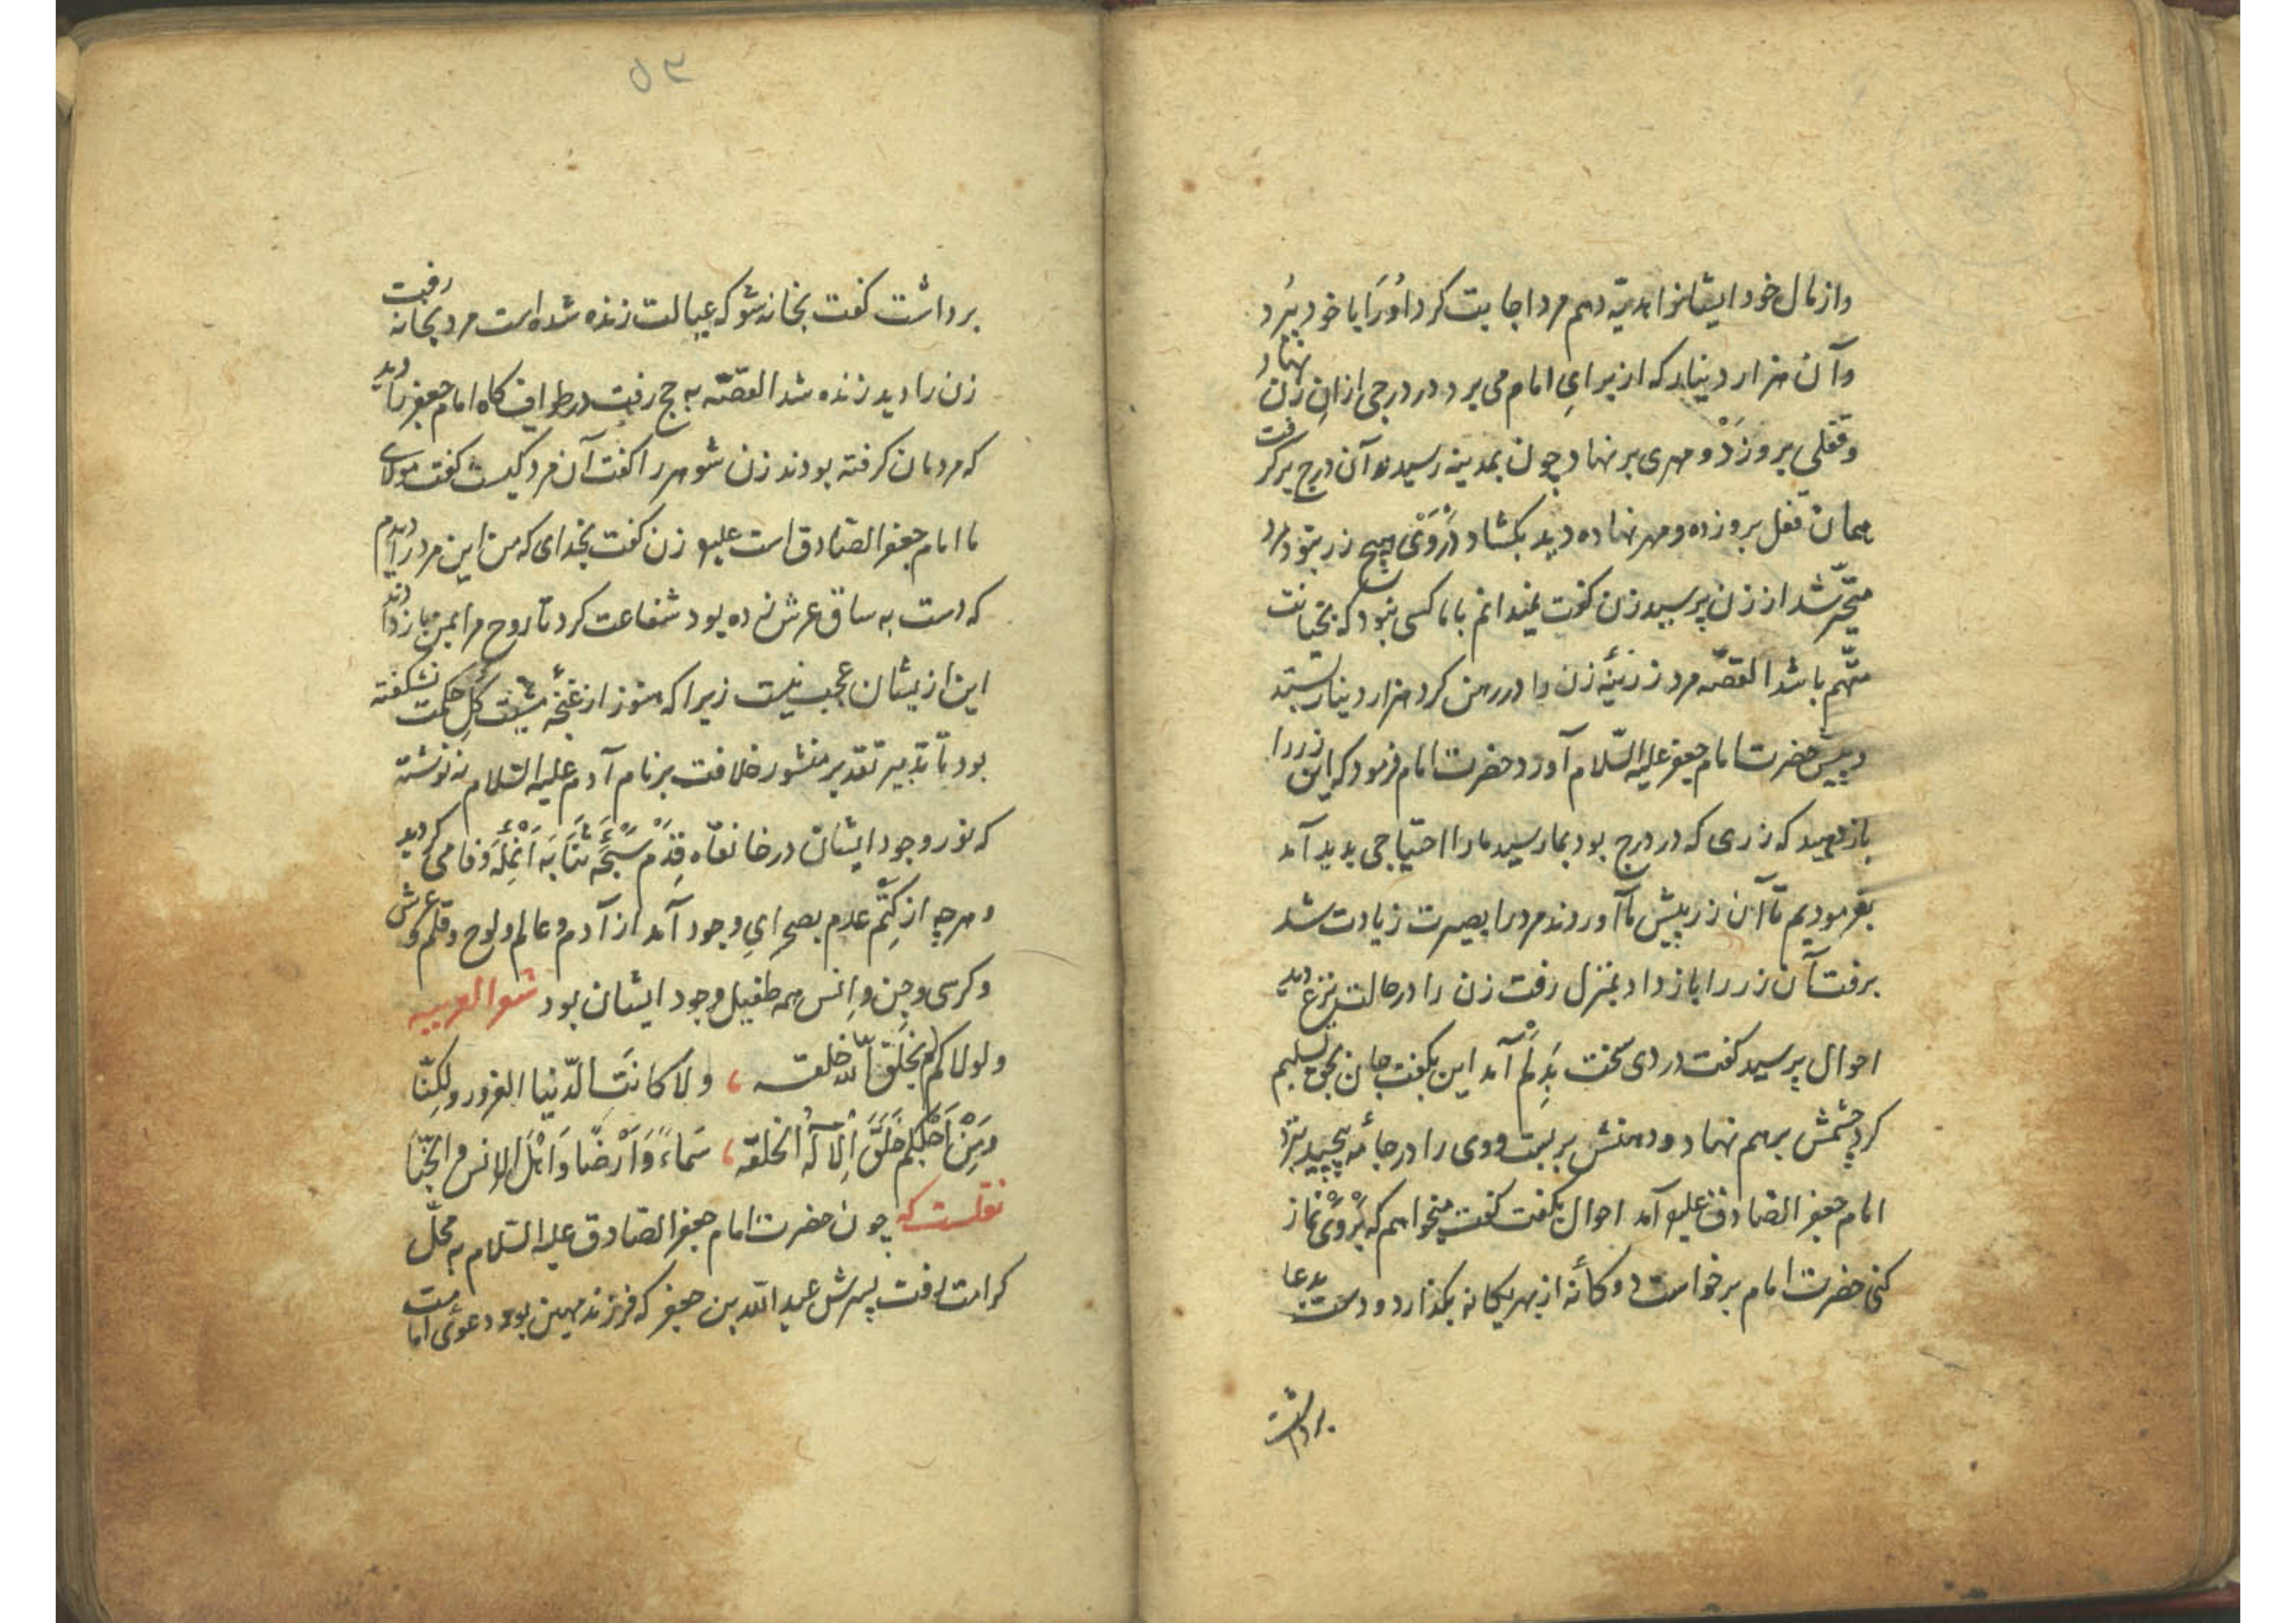 واز مال خود ایشانرا هدیّه دهم مرد اجابت کرد اورا با خود ببرد
وآن هزار دینار که از برای امام می برد در درجی ازان زن نهاد
وقفلی بروزد و مهری بر نهاد چون بمدینه رسید آن درج برگرفت
همان قفل بروزده و مهر نهاده دید بکشاد دروی هیچ زر نبود مرد
متحیّر شد از زن پرسید زن گفت نمیدانم با ما کسی نبود که بخیانت
متّهم باشد القصّه مرد زرینهٔ زن را در رهن کرد هزار دینار بستد
و پیش حضرت امام جعفر علیه السّلام آورد حضرت امام فرمود که این زر را
باز دهید که زری که در درج بود بما رسید ما را احتیاجی بدید آمد
بفرمودیم تا آن زر پیش ما آوردند مرد را بصیرت زیادت شد
برفت آن زر را باز داد بمنزل رفت زن را در حالت نزع دید
احوال پرسید گفت دردی سخت بدلم آمد این بگفت جان بحق تسلیم
کرد چشمش بر هم نهاد و دهنش بر بست ووی را در جامه پیچید بنزد
امام جعفر الصّادق علیه آمد احوال بگفت گفت میخواهم که بروی نماز
کنی حضرت امام برخواست دوگانه از بهر یگانه بگذارد و دست بدعا
برداشت
۵۳
برداشت گفت بخانه شو که عیالت زنده شده است مرد بخانه رفت
زن را دید زنده شد القصّه به حج رفت در طواف گاه امام جعفر را دید
که مردمان گرفته بودند زن شوهر را گفت آن مرد کیست گفت مولای
ما امام جعفر الصّادق است علیه زن گفت بخدای که من این مرد را دیدم
که دست به ساق عرش زده بود شفاعت کرد تا روح مرا بمن باز دادند
این ازیشان عجب نیست زیرا که هنوز از غنچهٔ مشیّت گل حکمت نشکفته
بود تا تدبیر تقدیر منشور خلافت بر نام آدم علیه السّلام نه نوشته
که نور وجود ایشان در خانقاه قدم
وهرچه از کتم عدم بصحرای وجود آمد از آدم وعالم ولوح وقلم وعرش
وکرسی وجن وانس همه طفیل وجود ایشان بود شعر العربیه
ولولاکم لم یخلق الله خلقه ، ولا کانت الدّنیا الغرور ولکنّا
ومن اجلکم خلق الاله الخلقه ، سماءً وارضا واهل الانس والجنّا
نقلست که چون حضرت امام جعفر الصّادق علیه السّلام به محلّ
کرامت رفت پسرش عبد الله بن جعفر که فرزند مهین بود دعوئ امامت